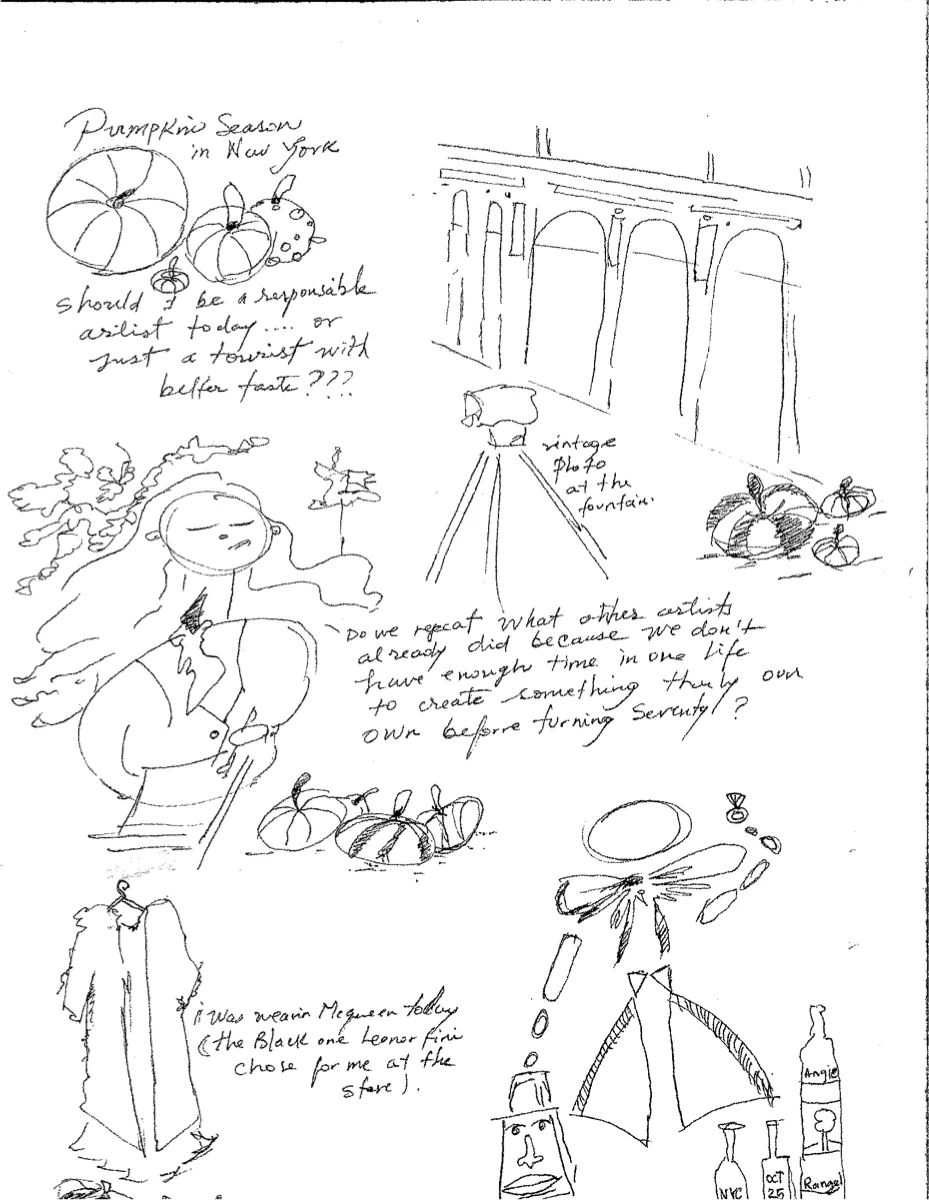 Pumpkin Season
in New York
should I be a responsable
artist today.... or
just a tourist with
better taste???
vintage
photo
at the
fountain.
Do we repeat what other artists
already did because we don't
have enough time in one life
to create something our
own beforre turning Seventy?
i Was wearin Mcqueen today
(the Black one Leonor fini
chose for me at the
store).
Angie
Rangel
NYC
OCT
25